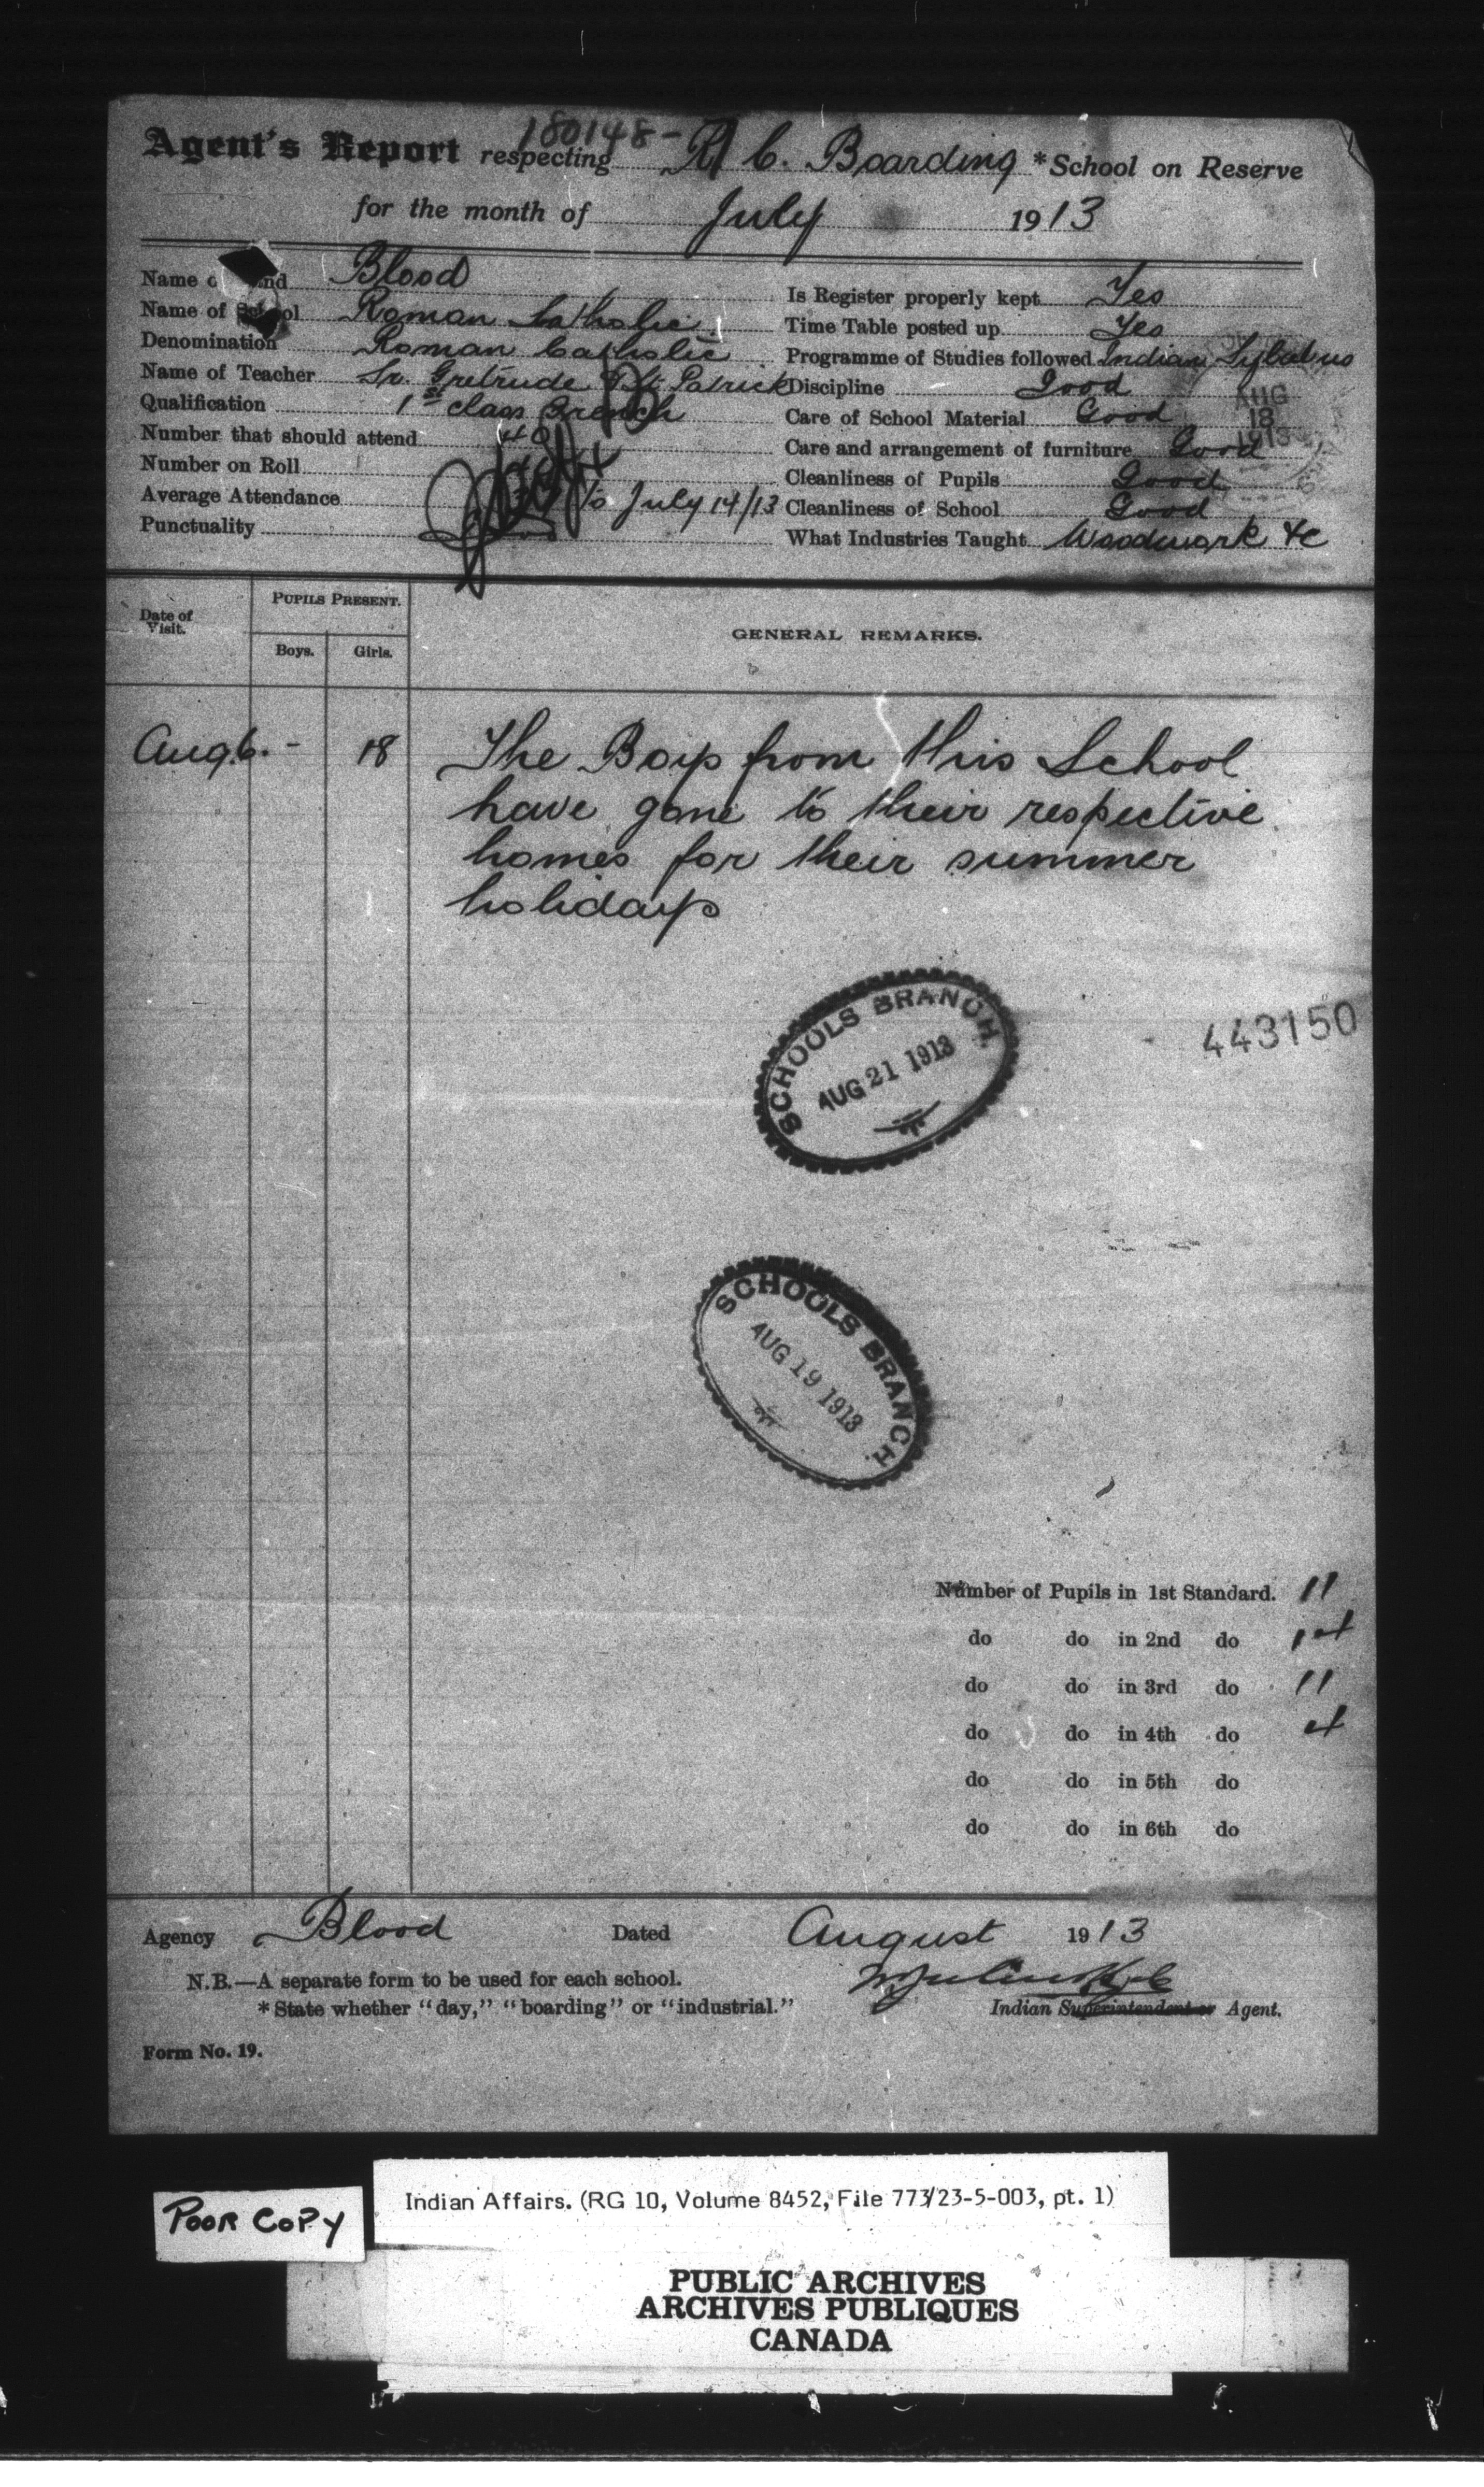 180148-
Agent's Report respecting R. C. Boarding *School on Reserve
for the month of July 1913
Name of Band Blood
Name of School Roman Catholic
Denomination Roman Catholic
Name of Teacher Sr. Gretrude St. Patrick
Qualification 1st class French
Number that should attend 40
Number on Roll
Average Attendance to July 14/13
Punctuality
Is Register properly kept Yes
Time Table posted up Yes
Programme of Studies followed Indian Sylabus
Discipline Good
Care of School Material Good
Care and arrangement of furniture Good
Cleanliness of Pupils Good
Cleanliness of School Good
What Industries Taught Woodwork &c
AUG
18
1913
Date of Visit.
PUPILS PRESENT.
Boys. Girls.
GENERAL REMARKS.
Aug. 6. - 18 The Boys from this School
have gone to their respective
homes for their summer
holidays
SCHOOLS BRANCH.
AUG 21 1913
443150
SCHOOLS BRANCH.
AUG 19 1913
Number of Pupils in 1st Standard. 11
do do in 2nd do 14
do do in 3rd do 11
do do in 4th do 4
do do in 5th do
do do in 6th do
Agency Blood Dated August 1913
N.B.—A separate form to be used for each school.
*State whether "day," "boarding" or "industrial."
Indian Superintendent or Agent.
Form No. 19.
POOR COPY
Indian Affairs. (RG 10, Volume 8452, File 773/23-5-003, pt. 1)
PUBLIC ARCHIVES
ARCHIVES PUBLIQUES
CANADA